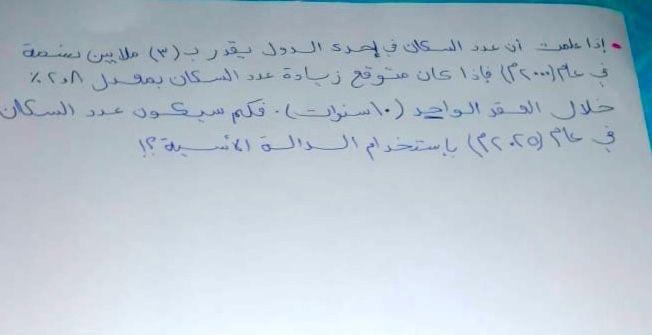 • إذا علمت أن عدد السكان في إحدى الدول يقدر ب (٣) ملايين نسمة
في عام (٢٠٠٠م) فإذا كان متوقع زيادة عدد السكان بمعدل ٢،٨٪
خلال العقد الواحد (١٠ سنوات). فكم سيكون عدد السكان
في عام (٢٠٢٥م) بإستخدام الدالة الأسية ؟!